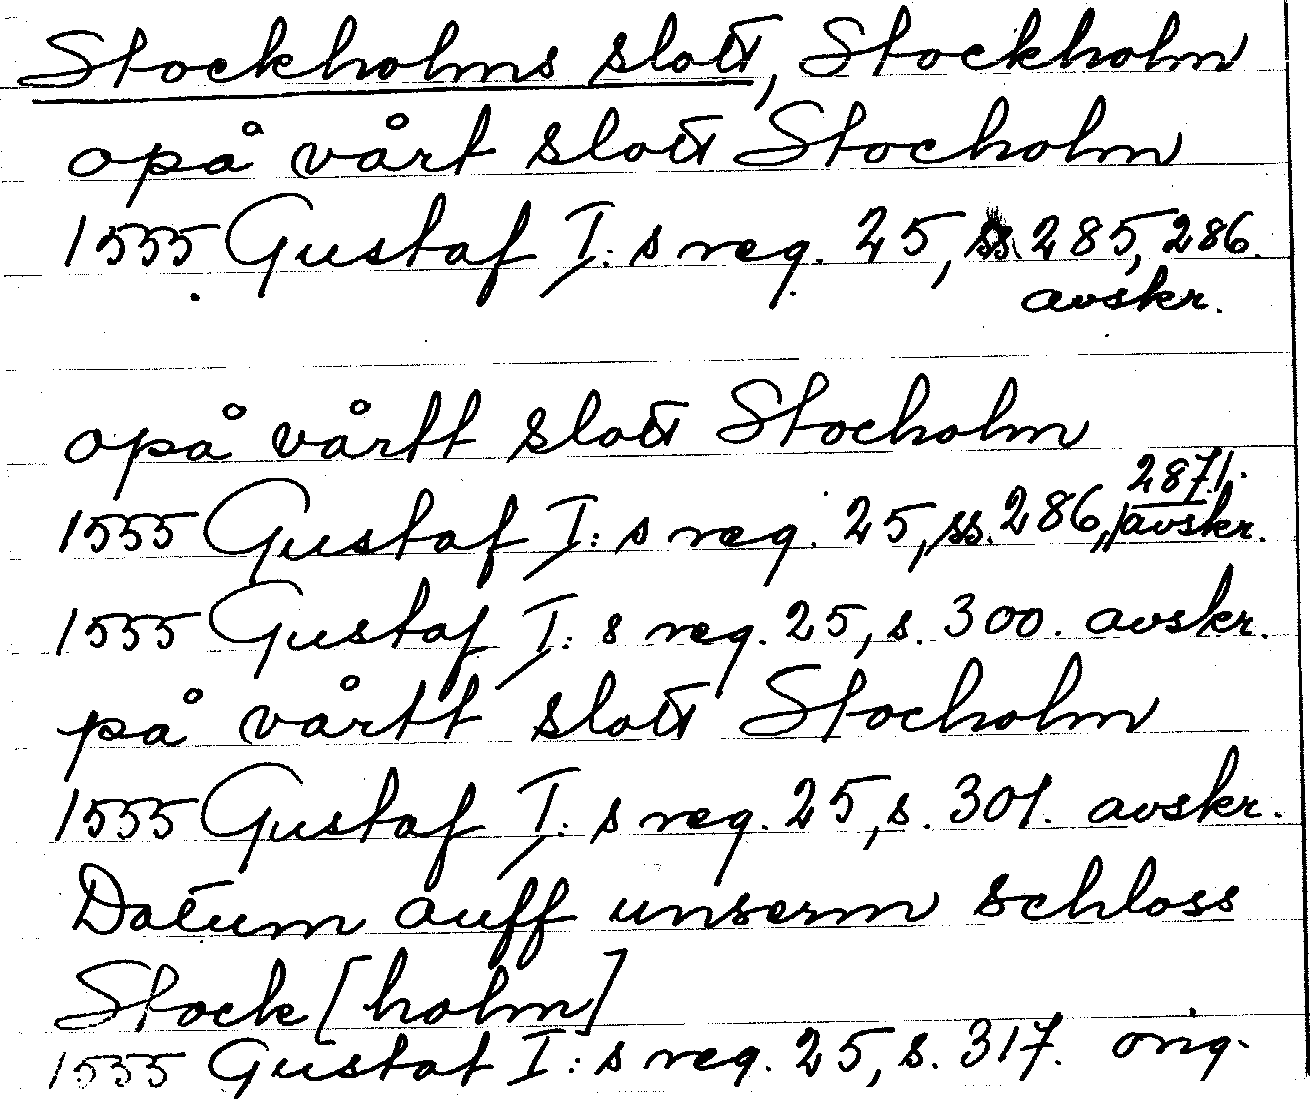 Stockholms slott, Stockholm
opå vårt slott Stocholm
1555 Gustaf I:s reg. 25, ss. 285, 286.
avskr.
opå vårtt slott Stocholm
1555 Gustaf I:s reg. 25, ss. 286, 287. avskr.
1555 Gustaf I:s reg. 25, s. 300. avskr.
på vårtt slott Stocholm
1555 Gustaf I:s reg. 25, s. 301. avskr.
Datum auff unserm schloss
Stock [holm]
1555 Gustaf I:s reg. 25, s. 317. orig.